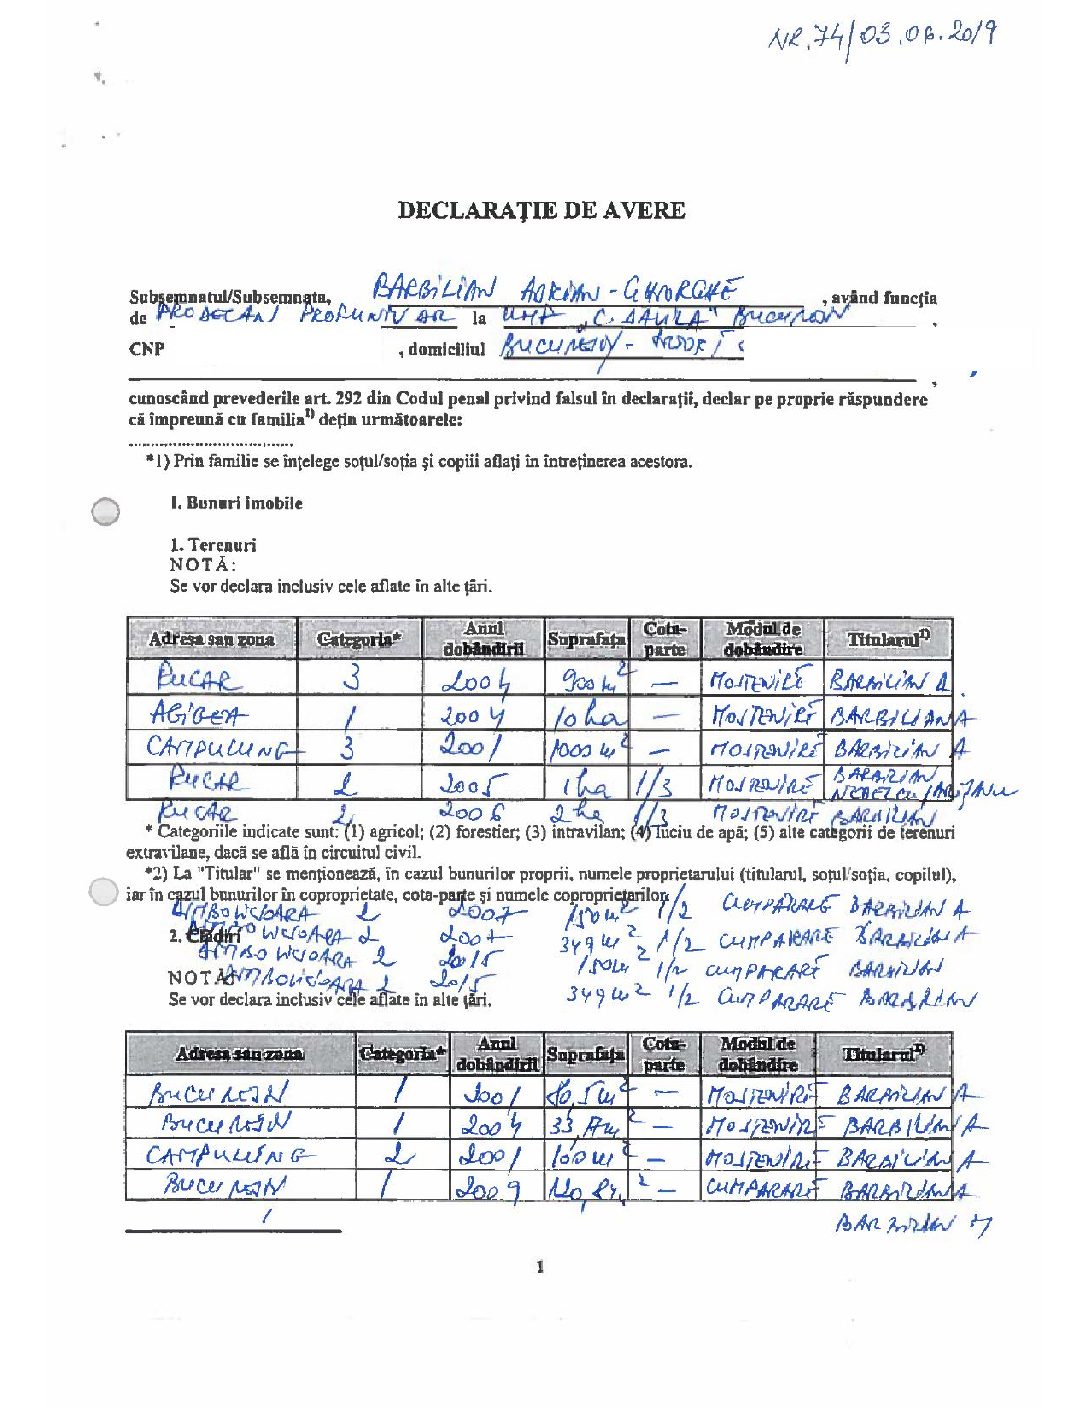 NR. 74/03.06.2019
DECLARAŢIE DE AVERE
Subsemnatul/Subsemnata, BARBILIAN ADRIAN-GHEORGHE, având funcţia
de PRODECAN, PROF UNIVAR la UMF "C. DAVILA" Bucureşti,
CNP , domiciliul BUCUREŞTI -
,
cunoscând prevederile art. 292 din Codul penal privind falsul în declaraţii, declar pe proprie răspundere
că împreună cu familia1) deţin următoarele:
*1) Prin familie se înţelege soţul/soţia şi copiii aflaţi în întreţinerea acestora.
I. Bunuri imobile
1. Terenuri
NOTĂ:
Se vor declara inclusiv cele aflate în alte ţări.
Adresa sau zona Categoria* Anul dobândirii Suprafaţa Cota-parte Modul de dobândire Titularul2)
RUCAR 3 2004 900 m2 — MOSTENIRE BARBILIAN A
AGIGEA 1 2004 10 ha — MOSTENIRE BARBILIAN A
CAMPULUNG 3 2001 1000 m2 — MOSTENIRE BARBILIAN A
RUCAR 2 2005 1 ha 1/3 MOSTENIRE BARBILIAN
RUCAR 2 2006 2 ha 1/3 MOSTENIRE BARBILIAN
* Categoriile indicate sunt: (1) agricol; (2) forestier; (3) intravilan; (4) luciu de apă; (5) alte categorii de terenuri
extravilane, dacă se află în circuitul civil.
*2) La "Titular" se menţionează, în cazul bunurilor proprii, numele proprietarului (titularul, soţul/soţia, copilul),
iar în cazul bunurilor în coproprietate, cota-parte şi numele coproprietarilor.
DIMBOVICIOARA 2 2007 150 m2 1/2 CUMPARARE BARBILIAN A
DIMBOVICIOARA 2 2007 349 m2 1/2 CUMPARARE BARBILIAN A
2. Clădiri
DIMBOVICIOARA 2 2015 150 m2 1/2 CUMPARARE BARBILIAN
NOTĂ:
DIMBOVICIOARA 2 2015 349 m2 1/2 CUMPARARE BARBILIAN
Se vor declara inclusiv cele aflate în alte ţări.
Adresa sau zona Categoria* Anul dobândirii Suprafaţa Cota-parte Modul de dobândire Titularul2)
BUCURESTI 1 2001 m2 — MOSTENIRE BARBILIAN A
BUCURESTI 1 2004 m2 — MOSTENIRE BARBILIAN A
CAMPULUNG 2 2001 100 m2 — MOSTENIRE BARBILIAN A
BUCURESTI 1 2009 — CUMPARARE BARBILIAN A
BARBILIAN
1